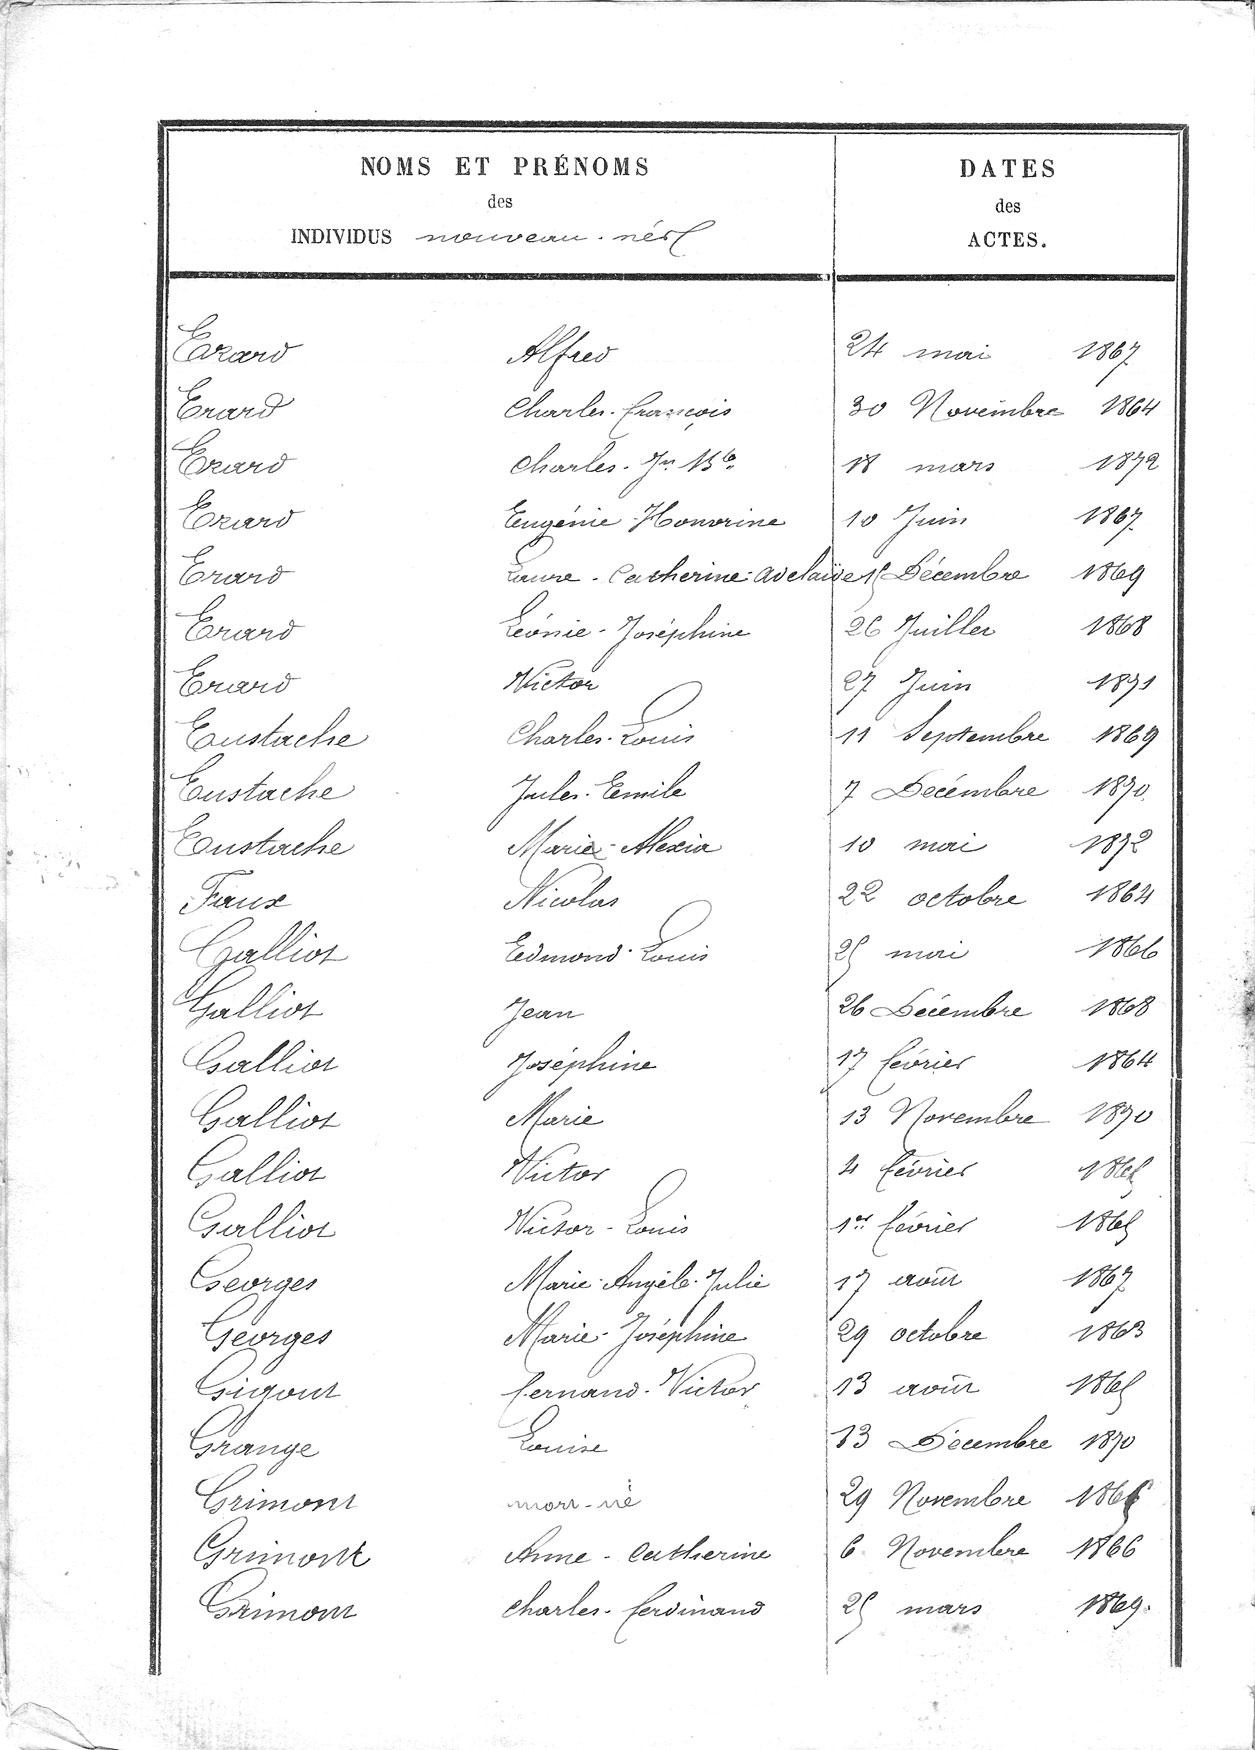 NOMS ET PRÉNOMS
des
INDIVIDUS nouveau-nés
DATES
des
ACTES.
Erard Alfred 24 mai 1867
Erard Charles-François 30 Novembre 1864
Erard Charles-Jn Bte 18 mars 1872
Erard Eugénie-Honorine 10 Juin 1867
Erard Laure-Catherine-adelaïde 15 Décembre 1869
Erard Léonie-Joséphine 26 Juillet 1868
Erard Victor 27 Juin 1871
Eustache Charles-Louis 11 Septembre 1869
Eustache Jules-Emile 7 Decémbre 1870
Eustache Marie-Alexia 10 mai 1872
Faux Nicolas 22 octobre 1864
Galliot Edmond-Louis 25 mai 1866
Galliot Jean 26 Décembre 1868
Galliot Joséphine 17 février 1864
Galliot Marie 13 Novembre 1870
Galliot Victor 4 février
Galliot Victor-Louis 1er février 1865
Georges Marie-Angèle-Julie 17 août 1867
Georges Marie-Joséphine 29 octobre 1863
Gigout fernand-Victor 13 août 1865
Grange Louise 13 Décembre 1870
Grimont mort-né 29 Novembre
Grimont Anne-Catherine 6 Novembre 1866
Grimont Charles-ferdinand 25 mars 1869.